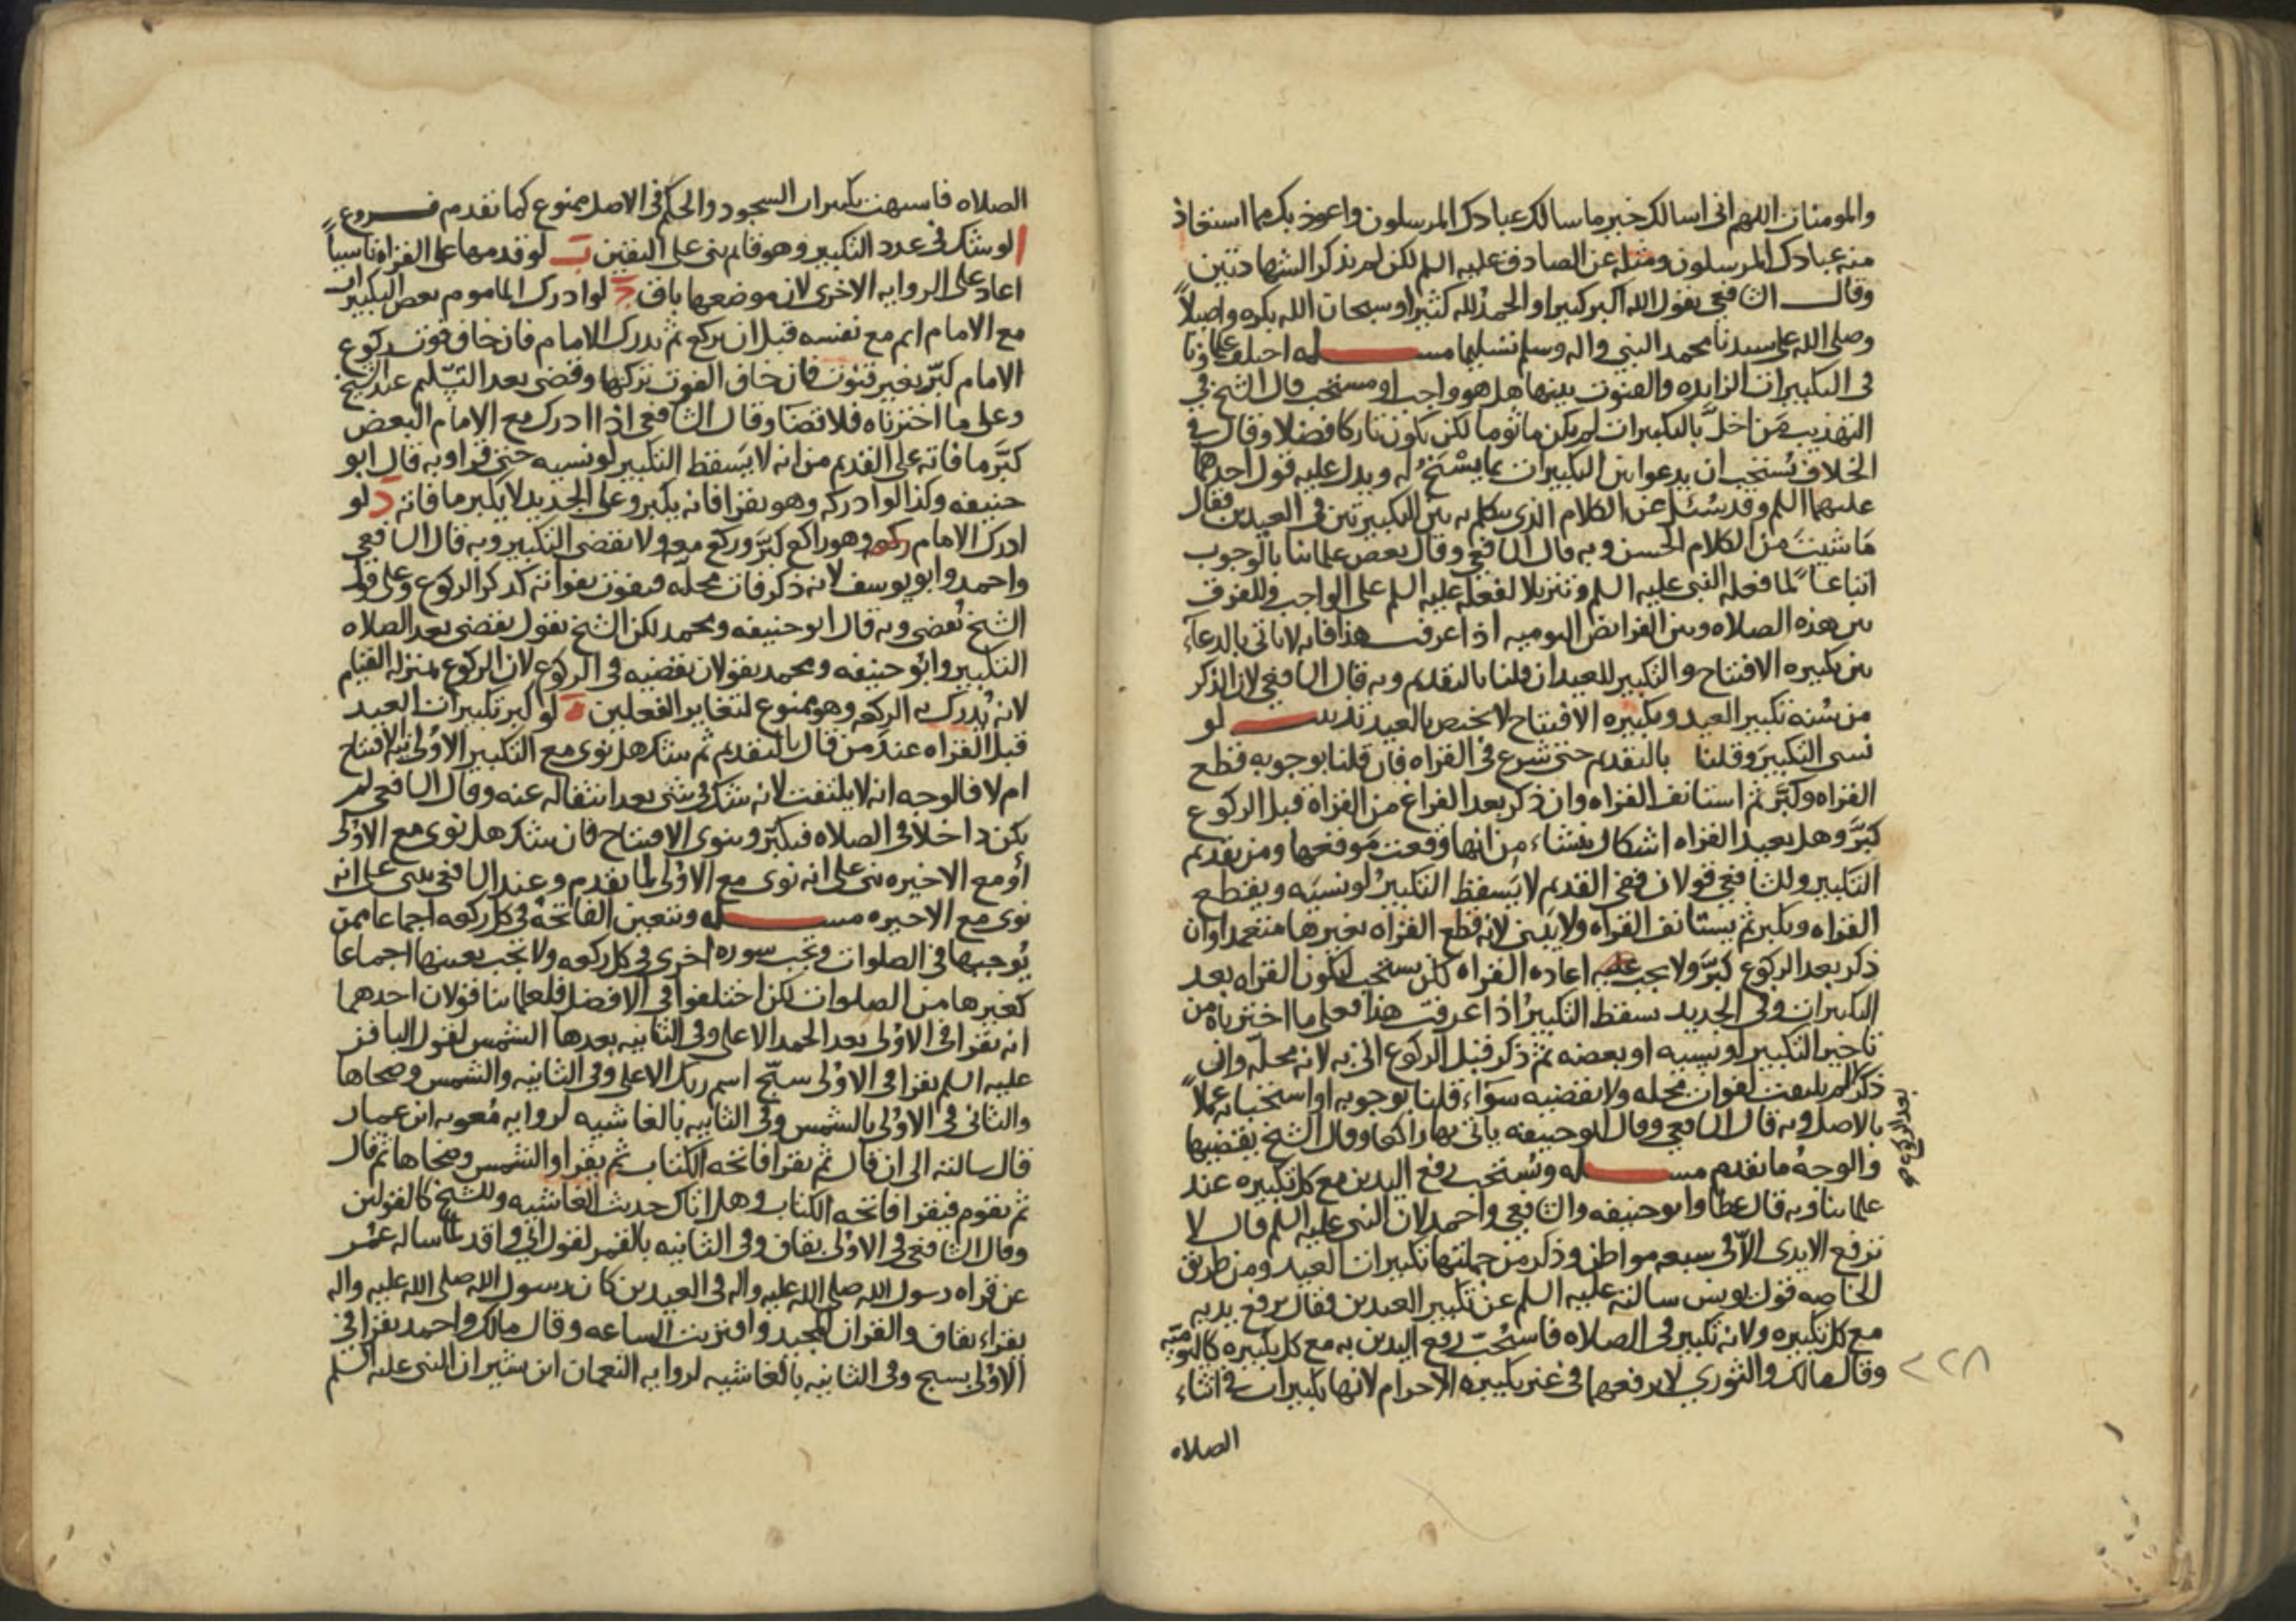 والمومنات اللهم انى اسالك خير ما سالك عبادك المرسلون واعوذ بك مما استعاذ
منه عبادك المرسلون ومثله عن الصادق عليه السلم لكن لم يذكر الشهادتين
وقال الشافعى يقول الله اكبر كبيرا والحمد لله كثيرا وسبحان الله بكره واصيلاً
وصلى الله على سيدنا محمد النبي واله وسلم تسليما مسـله اختلف علماونا
فى التكبيرات الزايده والقنوت بينها هل هو واجب او مستحب قال الشيخ في
التهذيب مَن اخلَّ بالتكبيرات لم يكن ماثوما لكن يكون تاركا فضلا وقال في
الخلاف يُستحب ان يدعوا بين التكبيرات بما يسْنَحُ له ويدل عليه قول احدهما
عليهما السلم وقد سُئل عن الكلام الذى يتكلم به بين التكبيرتين فى العيدين فقال
مَا شيتَ من الكلام الحسن وبه قال الشافعي وقال بعض علمائنا بالوجوب
اتباعاً لما فعله النبى عليه السلم وتنزيلا لفعله عليه السلم على الواجب وللفرق
بين هذه الصلاه وبين الفرائض اليوميه اذا عرفت هذا فانه لا ياتى بالدعآء
بين تكبيره الافتتاح والتكبير للعيد ان قلنا بالتقديم وبه قال الشافعى لان الذكر
من سُنه تكبير العيد وتكبيره الافتتاح لا يختص بالعيد تذنيب لو
نسى التكبيرَ وقلنا بالتقديم حتى شرع فى القراه فان قلنا بوجوبه قطع
القراه وكبَّر ثم استانف القراه وان ذكر بعد الفراغ من القراة قبل الركوع
كبَّر وهل يعيد القراه اشكال ينشاء مِن انها وقعت مَوقعها ومن تقديم
التكبير وللشافعى قولان ففى القديم لا يَسقط التكبيرُ لو نسيَه ويقطع
القراه ويكبر ثم يستانف القراه ولا يَبنى لانه قطع القراه بغيرها متعمدا وان
ذكر بعد الركوع كبَّر ولا يجب عليه اعاده القراه لكن يستحب ليكون القراه بعد
التكبيرات وفى الجديد يسقط التكبيرُ اذا عرفت هذا فعلى ما اخترناه من
تاخير التكبير لو نسيه او بعضه ثم ذكر قبل الركوع اتى به لانه محلّه وان
ذكر لم يلتفت لفوات محله ولا يقضيه سوَاء قلنا بوجوبه او استحبابه عملاً
بعد الركوع صح
بالاصل وبه قال الشافعي وقال ابو حنيفه ياتى بها راكعا وقال الشيخ يقضيها
والوجهُ ما تقدم مسـله ويُستحب رفع اليدين مع كل تكبيره عند
علمائنا وبه قال عطا وابو حنيفه والشافعى واحمد لان النبى عليه السلم قال لا
ترفع الايدى الّا فى سبعه مواطن وذكر من جملتها تكبيرات العيد ومن طريق
الخاصه قول يونس سالته عليه السلم عن تكبير العيدين فقال يرفع يديه
مع كل تكبيره ولانه تكبير فى الصلاه فاستُحبّ رفع اليدين به مع كل تكبيره كاليوميّه
وقال مالك والثوري لا يرفعهما فى غير تكبيره الاحرام لانها تكبيرات في اثناء
٢٢٨
الصلاه
الصلاه فاشبهت تكبيرات السجود والحكم فى الاصل ممنوع كما تقدم فـروع
ا لو شك فى عدد التكبير وهو قايم بنى على اليقين ب لو قدمها على القراه ناسياً
اعاد على الروايه الاخرى لان موضعها باق ج لو ادرك الماموم بعض التكبيرات
مع الامام اتم مع نفسه قبل ان يركع ثم يدرك الامام فان خاف فوت ركوع
الامام كبّر بغير قنوت فان خاف الفوت تركها وقضى بعد التسليم عند الشيخ
وعلى ما اخترناه فلا قضا وقال الشافعى اذا ادرك مع الامام البعض
كبَّر ما فاته على القديم من انه لا يَسقط التكبير لو نسيه حتى قرا وبه قال ابو
حنيفه وكذا لو ادركه وهو يقرا فانه يكبر وعلى الجديد لا يكبر ما فاته د لو
ادرك الامام وهو راكع كبَّر وركع معه ولا يقضى التكبير وبه قال الشافعى
واحمد وابو يوسف لانه ذكر فات محلّه فيفوت بفواته كذكر الركوع وعلى قول
الشيخ تُقضى وبه قال ابو حنيفه ومحمد لكن الشيخ يقول يقضى بعد الصلاه
التكبير وابو حنيفه ومحمد يقولان يقضيه فى الركوع لان الركوع بمنزله القيام
لانه يُدرك به الركعه وهو ممنوع لتغاير الفعلين ه لو كبر تكبيرات العيد
قبل القراه عندَ من قال بالتقديم ثم شك هل نوى مع التكبير الاوُلى نيه الافتتاح
ام لا فالوجه انه لا يلتفت لانه شك فى شى بعد انتقاله عنه وقال الشافعى لم
يكن داخلا فى الصلاه فيكبّر وينوى الافتتاح فان شك هل نوى مع الاوُلى
اَو مع الاخيره بنى على انه نوى مع الاوُلى لما تقدم وعند الشافعى يبنى على انه
نوى مع الاخيره مسـله وتتعين الفاتحه فى كل ركعه اجماعا ممن
يُوجبها فى الصلوات وتجب سوره اخرى فى كل ركعه ولا تجب بعينها اجماعا
كغيرها من الصلوات لكن اختلفوا فى الافضل فلعلمائنا قولان احدهما
انه يقرا فى الاوُلى بعد الحمد الاعلى وفى الثانيه بعدها الشمس لقول الباقر
عليه السلم يقرا فى الاوُلى سبّح اسم ربك الاعلى وفى الثانيه والشمس وضحاها
والثانى فى الاوُلى بالشمس وفى الثانيه بالغاشيه لروايه مُعويه ابن عمار
قال سالته الى ان قال ثم يقرا فاتحه الكتاب ثم يقرا والشمس وضحاها ثم قال
ثم يقوم فيقرا فاتحه الكتاب وهل اتاك حديث الغاشيه وللشيخ كالقولين
وقال الشافعى فى الاوُلى بقاف وفى الثانيه بالقمر لقول ابي واقد لمّا ساله عمُر
عن قراه رسول الله صلى الله عليه واله فى العيدين كان رسول الله صلى الله عليه واله
يقراء بقاف والقران المجيد واقتربت الساعه وقال مالك واحمد يقرا فى
الاوُلى بسبح وفى الثانيه بالغاشيه لروايه النعمان ابن بشير ان النبى عليه السلم